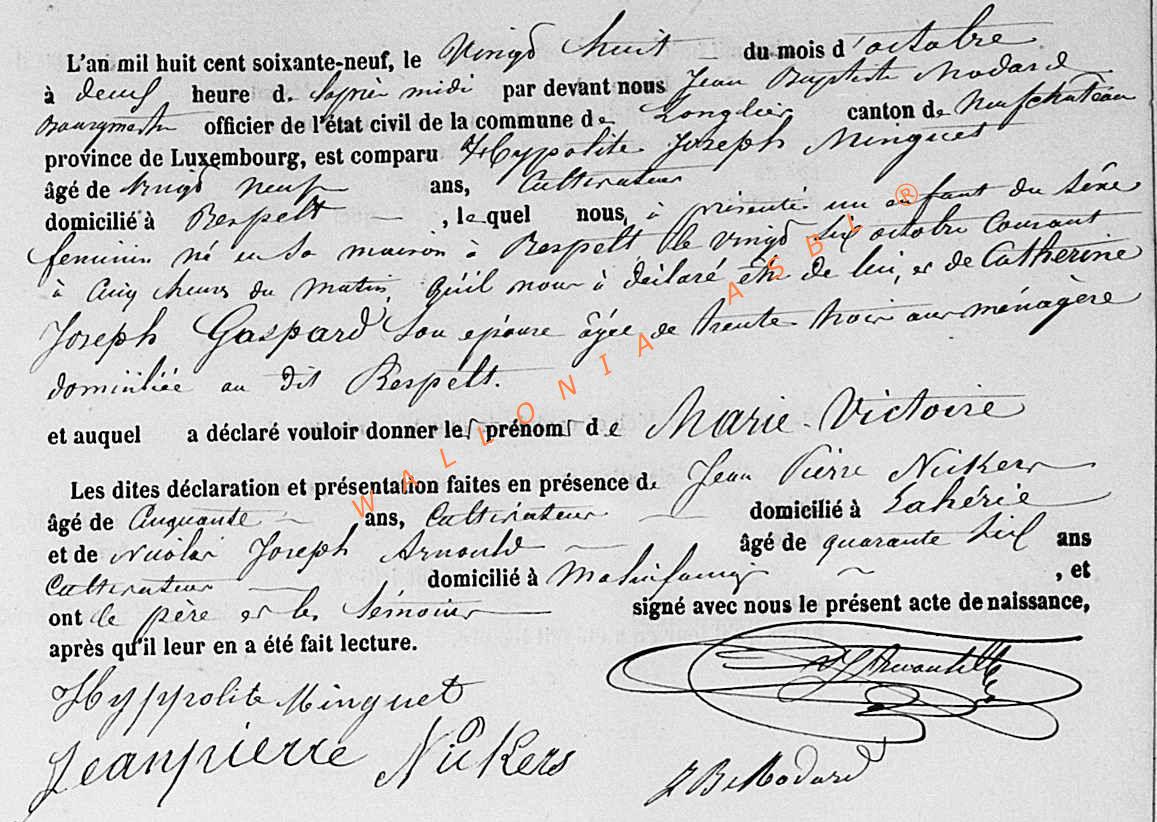 L'an mil huit cent soixante-neuf, le Vingd huit du mois d'octobre
à deux heure d. laprès midi par devant nous Jean Baptiste Modard
Bourgmestre officier de l'état civil de la commune de Longlier canton de Neufchateau
province de Luxembourg, est comparu Hyppolite Joseph Minguet
âgé de vingd neuf ans, Cultivateur
domicilié à Respelt, lequel nous, à présenté un enfant du sexe
feminin né en sa maison à Respelt le vingd six octobre Courant
à Cinq heures du matin, qu'il nous à déclaré être de lui, et de Catherine
Joseph Gaspard Son epouse âgée de trente trois ans ménagère
domiciliée au dit Respelt.
et auquel a déclaré vouloir donner les prénoms de Marie-Victoire
Les dites déclaration et présentation faites en présence de Jean Pierre Nickers
âgé de Cinquante ans, Cultivateur domicilié à Lahérie
et de Nicolas Joseph Arnould âgé de quarante six ans
Cultivateur domicilié à Molinfaing, et
ont le père et les témoins signé avec nous le présent acte de naissance,
après qu'il leur en a été fait lecture.
Hyppolite Minguet
NJ Arnould
Jeanpierre Nickers
J B Modard
WALLONIA ASBL ®